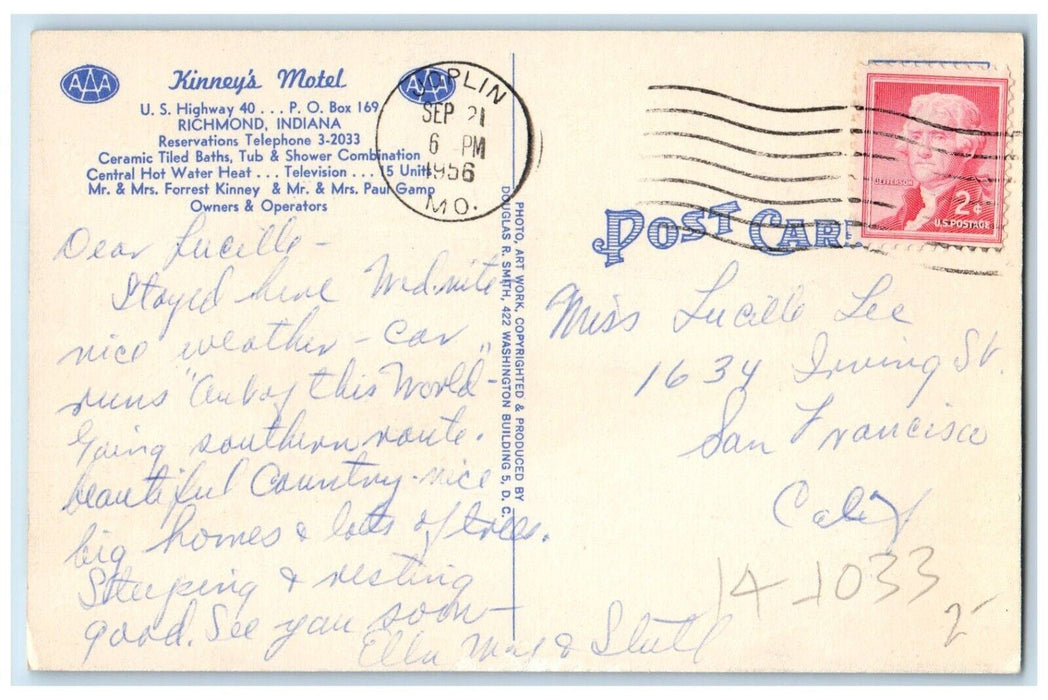 AAA Kinney's Motel AAA
U. S. Highway 40 . . . P. O. Box 169
RICHMOND, INDIANA
Reservations Telephone 3-2033
Ceramic Tiled Baths, Tub & Shower Combination
Central Hot Water Heat . . . Television . . . 15 Units
Mr. & Mrs. Forrest Kinney & Mr. & Mrs. Paul Gamp
Owners & Operators
JOPLIN
SEP 21
6 PM
1956
MO.
JEFFERSON
2¢
U.S. POSTAGE
POST CARD
Dear Lucille -
Stayed here Wed. nite
nice weather - car
runs "Out of this World"
Going southern route.
beautiful Country - nice
big homes & lots of trees.
Sleeping & resting
good. See you soon -
Ella Mae &
PHOTO, ART WORK, COPYRIGHTED & PRODUCED BY
DOUGLAS R. SMITH, 422 WASHINGTON BUILDING 5, D. C.
Miss Lucille Lee
1634 Irving St.
San Francisco
Calif
14-1033
2-